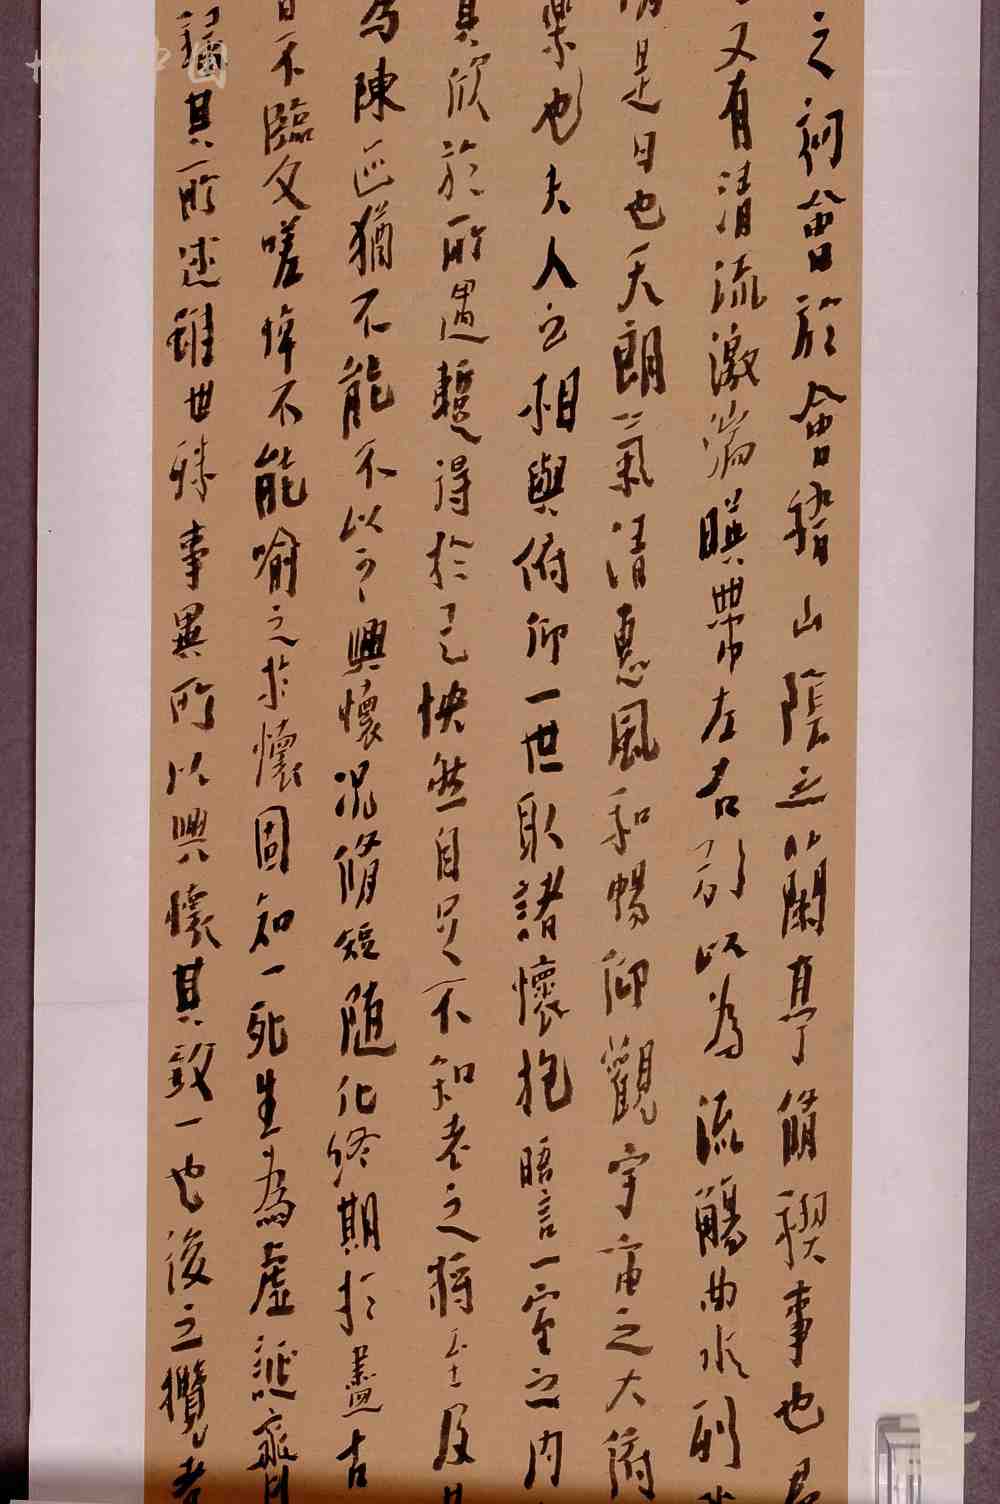 之初會於會稽山陰之蘭亭脩禊事也
又有清流激湍暎帶左右引以為流觴曲水列
是日也天朗氣清惠風和暢仰觀宇宙之大俯
樂也夫人之相與俯仰一世取諸懷抱晤言一室之内
其欣於所遇暫得於己怏然自足不知老之將至及其
為陳迹猶不能不以之興懷況脩短随化終期於盡古
不臨文嗟悼不能喻之於懷固知一死生為虛誕齊
錄其所述雖世殊事異所以興懷其致一也後之攬者
中国